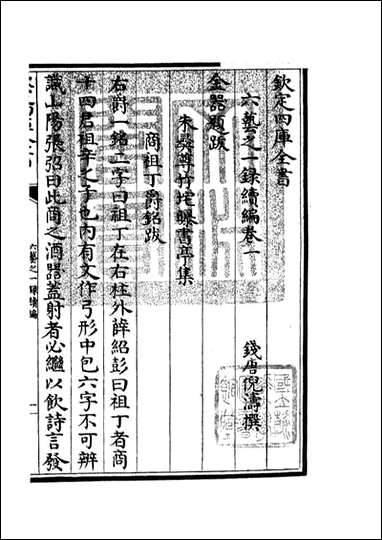 欽定四庫全書
六藝之一録續編卷一
錢唐倪濤撰
金器題跋
朱彛尊竹垞曝書亭集
商祖丁爵銘跋
右爵一銘二字曰祖丁在右柱外薛紹彭曰祖丁者商
十四君祖辛之子也内有文作弓形中包六字不可辨
識山陽張弨曰此商之酒器蓋射者必繼以飲詩言發
六藝之一録續編